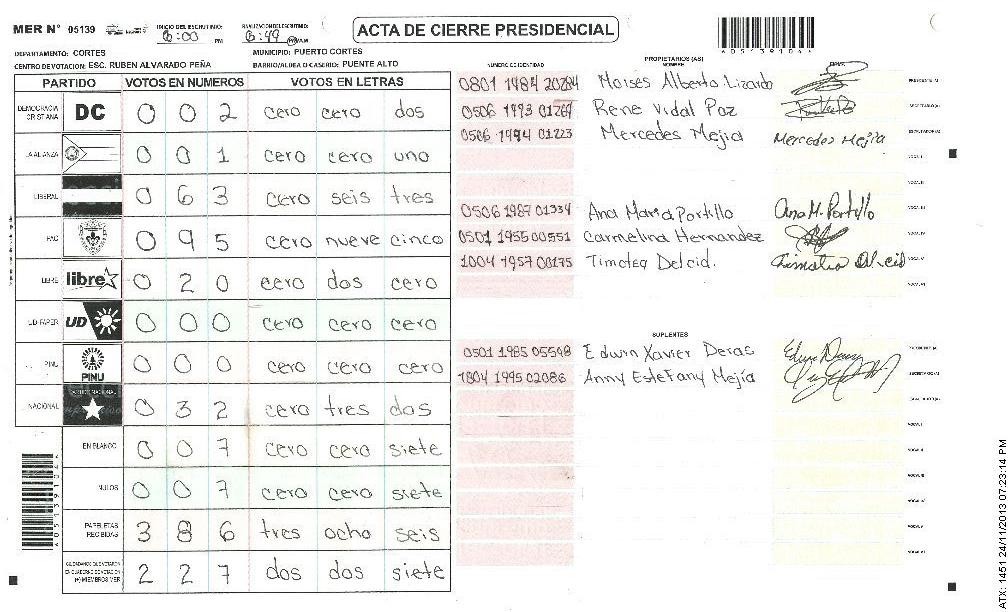 MER N° 05139
INICIO DEL ESCRUTINIO: 6:00 PM
FINALIZACION ESCRUTINIO: 6:49
ACTA DE CIERRE PRESIDENCIAL
4051391044
DEPARTAMENTO: CORTES
MUNICIPIO: PUERTO CORTES
CENTRO DE VOTACION: ESC. RUBEN ALVARADO PEÑA
BARRIO/ALDEA O CASERIO: PUENTE ALTO
PARTIDO VOTOS EN NUMEROS VOTOS EN LETRAS
DEMOCRACIA CRISTIANA DC 0 0 2 cero cero dos
LA ALIANZA 0 0 1 cero cero uno
LIBERAL 0 6 3 cero seis tres
PAC 0 9 5 cero nueve cinco
LIBRE libre 0 2 0 cero dos cero
UD-FAPER UD 0 0 0 cero cero cero
PINU PINU 0 0 0 cero cero cero
NACIONAL 0 3 2 cero tres dos
EN BLANCO 0 0 7 cero cero siete
NULOS 0 0 7 cero cero siete
PAPELETAS RECIBIDAS 3 8 6 tres ocho seis
CIUDADANOS QUE VOTARON EN CUADERNO DE VOTACION (+) MIEMBROS MER 2 2 7 dos dos siete
PROPIETARIOS (AS)
NUMERO DE IDENTIDAD NOMBRE FIRMA
0801 1984 Moises Alberto Lizardo PRESIDENTE (A)
0506 1993 Rene Vidal Paz SECRETARIO (A)
0506 1994 01223 Mercedes Mejia Mercedes Mejia ESCRUTADOR (A)
VOCAL I
VOCAL II
0506 1987 01334 Ana Maria Portillo Ana M. Portillo VOCAL III
0501 1955 00551 Carmelina Hernandez VOCAL IV
1004 1957 00175 Timotea Delcid. Timotea Delcid VOCAL V
VOCAL VI
SUPLENTES
0501 1985 05598 Edwin Xavier Deras PRESIDENTE (A)
1804 1995 02086 Anny Estefany Mejía SECRETARIO (A)
ESCRUTADOR (A)
VOCAL I
VOCAL II
VOCAL III
VOCAL IV
VOCAL V
VOCAL VI
ATX: 1451 24/11/2013 07:23:14 PM